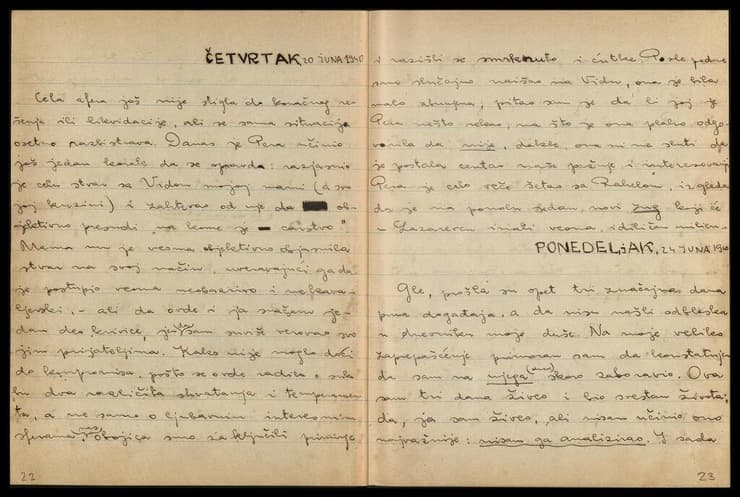 ČETVRTAK 20 JUNA 1940
Cela afera još nije stigla do konačnog re-
šenja ili likvidacije, ali se sama situacija
osetno razbistrava. Danas je Pera učinio
još jedan korak da se opravda: razjasnio
je celu stvar sa Vidom mojoj mami (a svo
joj kuzini) i zahtevao od nje da ob-
jektivno presudi „na kome je carstvo"
Mama mu je veoma objektivno objasnila
stvar na svoj način, uveravajući ga da
je postupio veoma neobazrivo i nekava-
ljerski, - ali da ovde i ja snašam je-
dan deo krivice, jer sam suviše verovao svo
jim prijateljima. Kako nije moglo doći
do kompromisa, pošto se ovde radilo o suko
bu dva različita shvatanja i temperamen
ta, a ne samo o ljubavnim interesnim
sferama, mi obojica smo zaključili primirje
i razišli se smrknuto i ćutke. Posle podne
sam slučajno naišao na Vidu, ona je bila
malo zbunjena, pitao sam je da li joj je
Pera nešto rekao, na što je ona plaho odgo-
vorila da nije, dakle, ona ni ne sluti da
je postala centar naše pažnje i interesovanj
Pera je celo veče šetao sa Rahelom, izgleda
da je na pomolu jedan, novi koji će
u Lazarevcu imati veoma, idiličan milien.
PONEDELjAK, 24 JUNA 1940
Gle, prošla su opet tri značajna dana
puna događaja, a da nisu našli odbleska
u dnevniku moje duše. Na moje veliko
zaprepašćenje primoran sam da konstatujem
da sam na njega (ovaj) skoro zaboravio. Ova
sam tri dana živeo i bio svestan života;
da, ja sam živeo, ali nisam učinio ono
najvažnije: nisam ga analizirao. I sada
22
23